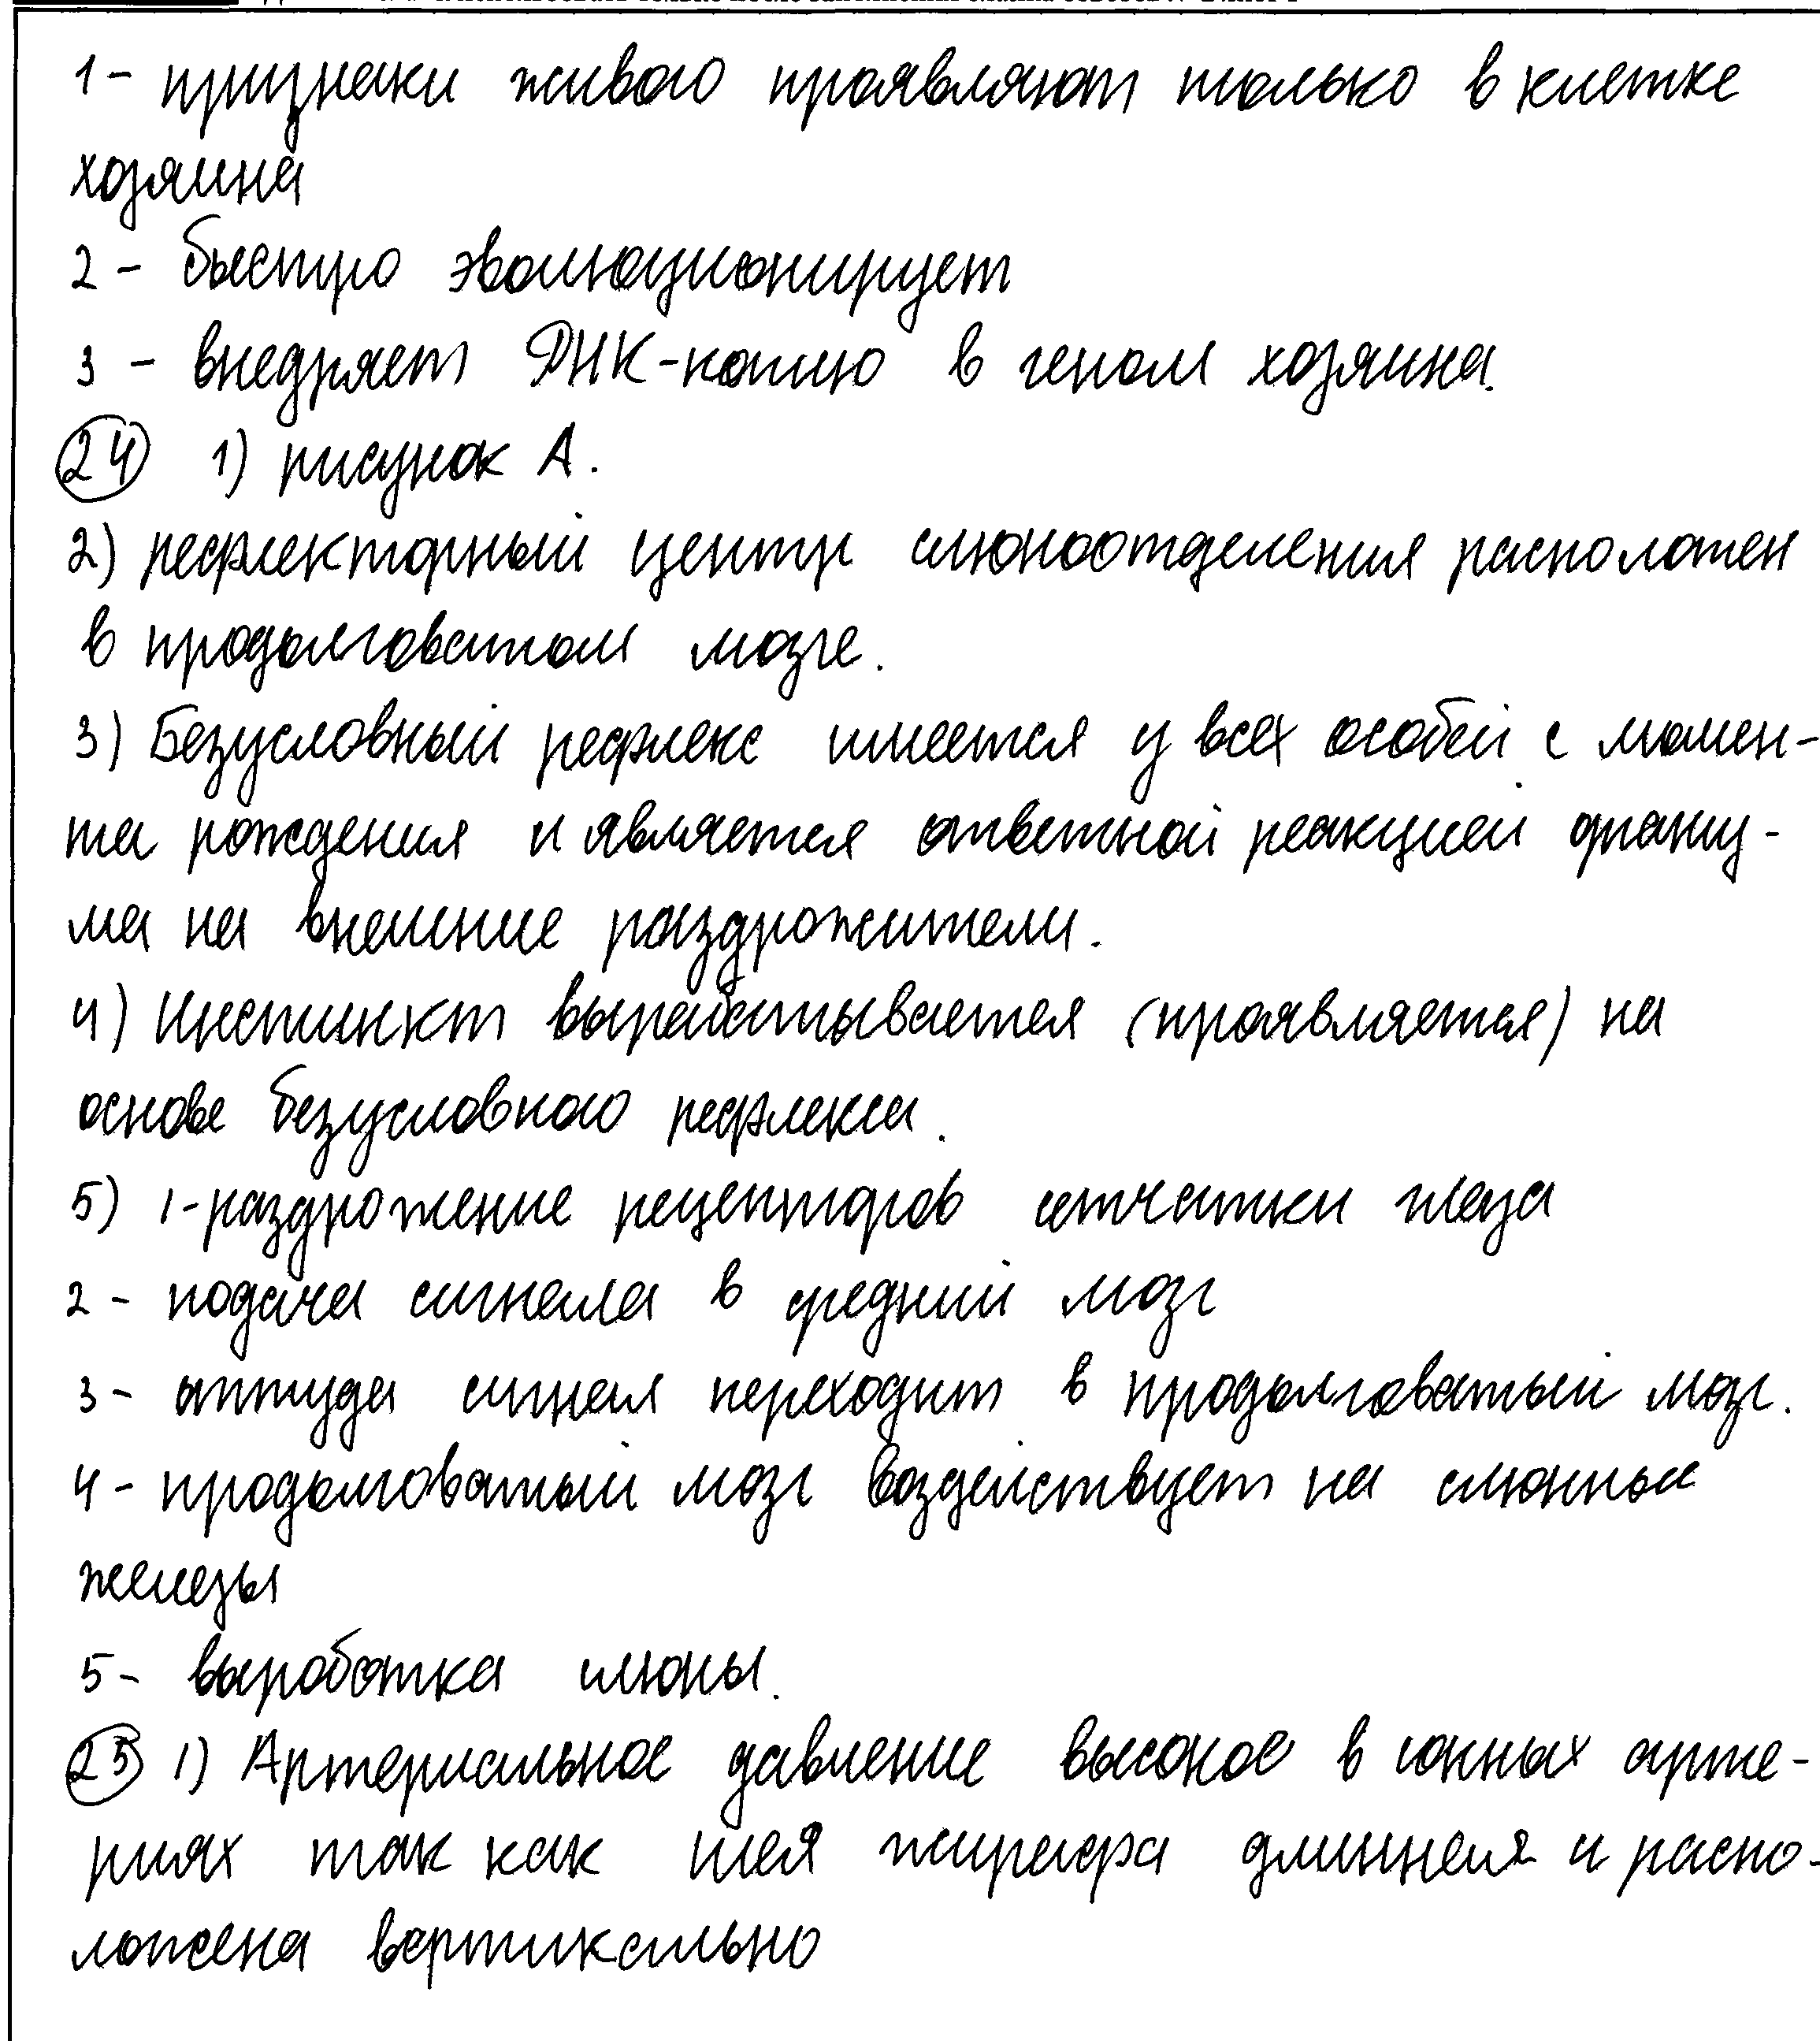 1- признаки живого проявляют только в клетке
хозяина
2 - быстро эволюционирует
3 - внедряет ДНК-копию в геном хозяина.
24 1) рисунок А.
2) рефлекторный центр слюноотделения расположен
в продолговатом мозге.
3) Безусловный рефлекс имеется у всех особей с момен-
та рождения и является ответной реакцией
ма на внешние раздрожители.
4) Инстинкт вырабатывается (проявляется) на
основе безусловного рефлекса.
5) 1-раздрожение рецепторов сетчатки глаза
2 - подача сигнала в средний мозг
3 - оттуда сигнал переходит в продолговатый мозг.
4 - продолговатый мозг воздействует на слюнные
железы
5 - выработка слюны.
25 1) Артериальное давление высокое в сонных арте-
риях так как шея жирафа длинная и распо-
ложена вертикально